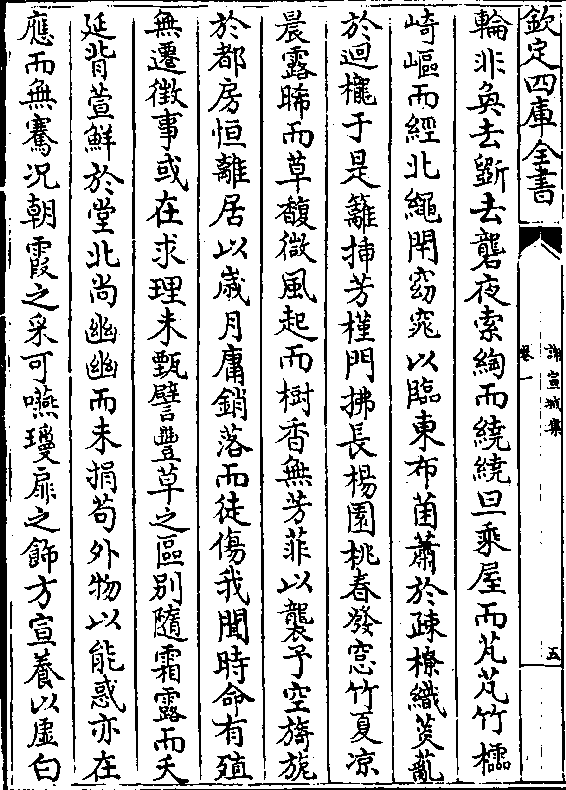 欽定四庫全書
謝宣城集
卷一
五
輪非奐去斵去礱夜索綯而繞繞旦乘屋而芃芃竹櫺
崎嶇而經北繩閈窈窕以臨東布菌蕭於疎橑織茭薍
於迴櫳于是籬揷芳槿門拂長楊園桃春發窓竹夏凉
晨露晞而草馥微風起而樹香無芳菲以襲予空旖旎
於都房恒離居以歲月庸銷落而徒傷我聞時命有殖
無遷徴事或在求理未甄譬豐草之區别隨霜露而夭
延背萱鮮於堂北尚幽幽而未捐茍外物以能惑亦在
應而無騫况朝霞之采可嚥瓊扉之飾方宣養以虚白